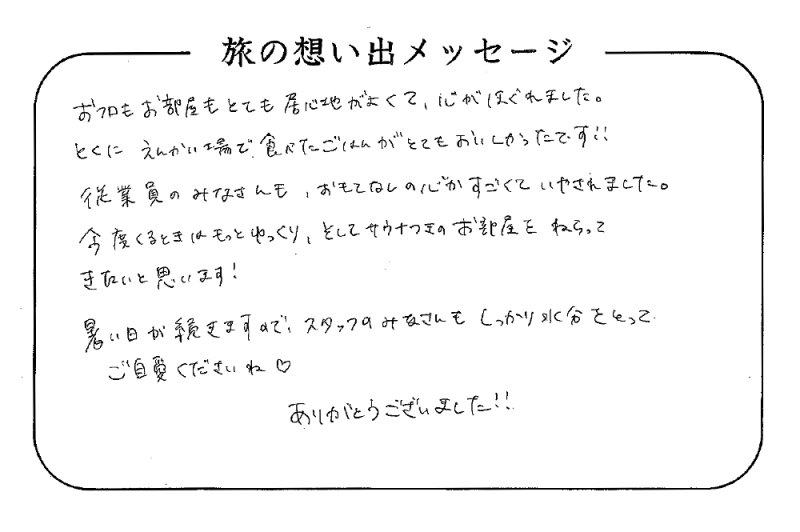 旅の想い出メッセージ
おフロもお部屋もとても居心地がよくて、心がほぐれました。
とくに えんかい場で食べたごはんがとてもおいしかったです!!
従業員のみなさんも、おもてなしの心がすごくていやされました。
今度くるときはもっとゆっくり、そしてサウナつきのお部屋を ねらって
きたいと思います!
暑い日が続きますので、スタッフのみなさんも しっかり水分をとって
ご自愛くださいね♡
ありがとうございました!!